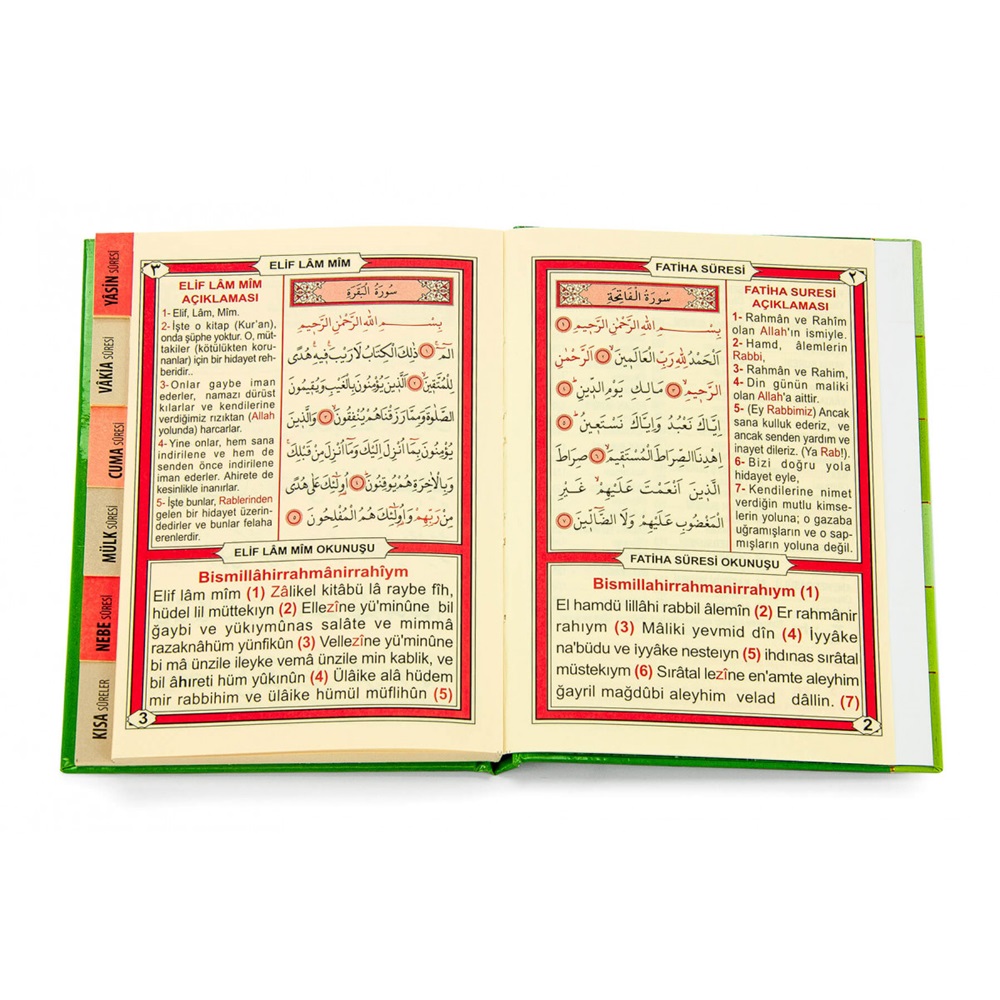 FATİHA SÛRESİ
٢
سُورَةُ الْفَاتِحَةِ
بِسْمِ اللّٰهِ الرَّحْمٰنِ الرَّحِيمِ ﴿١﴾
اَلْحَمْدُ لِلّٰهِ رَبِّ الْعَالَمِينَۙ ﴿٢﴾ اَلرَّحْمٰنِ
الرَّحِيمِۙ ﴿٣﴾ مَالِكِ يَوْمِ الدِّينِۜ ﴿٤﴾
اِيَّاكَ نَعْبُدُ وَاِيَّاكَ نَسْتَعِينُۜ ﴿٥﴾
اِهْدِنَا الصِّرَاطَ الْمُسْتَقِيمَۙ ﴿٦﴾ صِرَاطَ
الَّذِينَ اَنْعَمْتَ عَلَيْهِمْۙ غَيْرِ
الْمَغْضُوبِ عَلَيْهِمْ وَلَا الضَّٓالِّينَ ﴿٧﴾
FATİHA SURESİ
AÇIKLAMASI
1- Rahmân ve Rahîm
olan Allah'ın ismiyle.
2- Hamd, âlemlerin
Rabbi,
3- Rahmân ve Rahim,
4- Din günün maliki
olan Allah'a aittir.
5- (Ey Rabbimiz) Ancak
sana kulluk ederiz, ve
ancak senden yardım ve
inayet dileriz. (Ya Rab!).
6- Bizi doğru yola
hidayet eyle,
7- Kendilerine nimet
verdiğin mutlu kimse-
lerin yoluna; o gazaba
uğramışların ve o sap-
mışların yoluna değil.
FATİHA SÛRESİ OKUNUŞU
Bismillahirrahmanirrahıym (1)
El hamdü lillâhi rabbil âlemîn (2) Er rahmânir
rahıym (3) Mâliki yevmid dîn (4) İyyâke
na'büdu ve iyyâke nesteıyn (5) ihdınas sırâtal
müstekıym (6) Sırâtal lezîne en'amte aleyhim
ğayril mağdûbi aleyhim velad dâllin. (7)
2
٣
ELİF LÂM MÎM
ELİF LÂM MÎM
AÇIKLAMASI
1- Elif, Lâm, Mîm.
2- İşte o kitap (Kur'an),
onda şüphe yoktur. O, müt-
takiler (kötülükten koru-
nanlar) için bir hidayet reh-
beridir..
3-Onlar gaybe iman
ederler, namazı dürüst
kılarlar ve kendilerine
verdiğimiz rızıktan (Allah
yolunda) harcarlar.
4- Yine onlar, hem sana
indirilene ve hem de
senden önce indirilene
iman ederler. Ahirete de
kesinlikle inanırlar.
5- İşte bunlar, Rablerinden
gelen bir hidayet üzerin-
dedirler ve bunlar felaha
erenlerdir.
سُورَةُ الْبَقَرَةِ
بِسْمِ اللّٰهِ الرَّحْمٰنِ الرَّحِيمِ
الٓمٓ ﴿١﴾ ذٰلِكَ الْكِتَابُ لَا رَيْبَۚ فِيهِۚ هُدًى
لِلْمُتَّقِينَۙ ﴿٢﴾ اَلَّذِينَ يُؤْمِنُونَ بِالْغَيْبِ وَيُقِيمُونَ
الصَّلٰوةَ وَمِمَّا رَزَقْنَاهُمْ يُنْفِقُونَۙ ﴿٣﴾ وَالَّذِينَ
يُؤْمِنُونَ بِمَٓا اُنْزِلَ اِلَيْكَ وَمَٓا اُنْزِلَ مِنْ قَبْلِكَۚ
وَبِالْاٰخِرَةِ هُمْ يُوقِنُونَۜ ﴿٤﴾ اُو۬لٰٓئِكَ عَلٰى هُدًى
مِنْ رَبِّهِمْ وَاُو۬لٰٓئِكَ هُمُ الْمُفْلِحُونَ ﴿٥﴾
ELİF LÂM MÎM OKUNUŞU
Bismillâhirrahmânirrahîym
Elif lâm mîm (1) Zâlikel kitâbü lâ raybe fîh,
hüdel lil müttekıyn (2) Ellezîne yü'minûne bil
ğaybi ve yükıymûnas salâte ve mimmâ
razaknâhüm yünfikûn (3) Vellezîne yü'minûne
bi mâ ünzile ileyke vemâ ünzile min kablik, ve
bil âhıreti hüm yûkınûn (4) Ülâike alâ hüdem
mir rabbihim ve ülâike hümül müflihûn (5)
3
YÂSİN SÛRESİ
VÂKIA SÛRESİ
CUMA SÛRESİ
MÜLK SÛRESİ
NEBE SÛRESİ
KISA SÛRELER